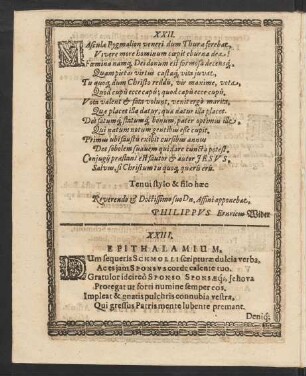 XXII.
MAscula Pygmalion veneri dum Thura ferebat,
Vivere more hominum cupit eburna dea.
Fœmina namq́; Dei donum est formosa decensq́;
Quam pietas virtus castaq́; vita juvat.
Tu quoq́; dum Christo reddis, vir maxime, vota,
Quid cupis recte cupis, quod cupis recte cupis.
Vota valent & fota volunt, venit ergò marito,
Quæ placet illa datur, quæ datur illa placet.
Det satumq́; statumq́; bonum, pater optimus ille
Qui natum notum gentibus esse cupit,
Primus ubi fausti
Det sobolem suavem qui dare cuncta potest,
Conjugij præstans est fautor & autor JESVS,
Salvus, si Christum tu quoq́; quæris eris.
Tenui stylo & filo hæc
Reverendo & Doctissimo suo Dn. Affini approperabat,
PHILIPPVS Henricus Wider
XXIII.
EPITHALAMIUM.
DUm sequeris SCHMOLLI scripturæ dulcia verba,
Ac es jam SPONSUS corde calente tuo.
Gratulor idcircò SPONSO SPONSÆq́; Jehova
Proregat ut forti numine semper eos,
Impleat & gnatis pulchris connubia vestra,
Qui gressus Patris mente lubente premant.
Deniq́;